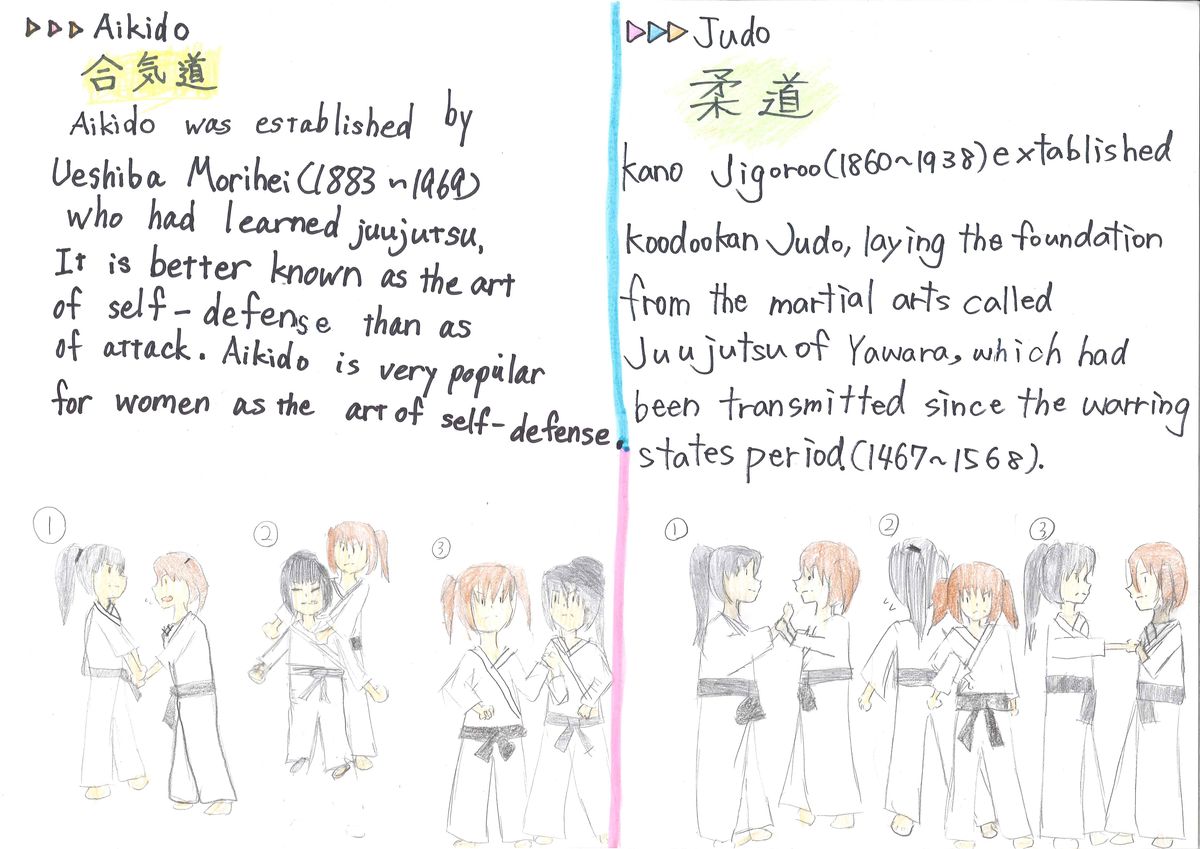 Aikido
合気道
Aikido was established by
Ueshiba Morihei (1883~1969)
who had learned juujutsu,
It is better known as the art
of self-defense than as
of attack. Aikido is very popular
for women as the art of self-defense.
①
②
③
Judo
柔道
kano Jigoroo (1860~1938) extablished
koodookan Judo, laying the foundation
from the martial arts called
Juujutsu of Yawara, which had
been transmitted since the warring
states period. (1467~1568).
①
②
③